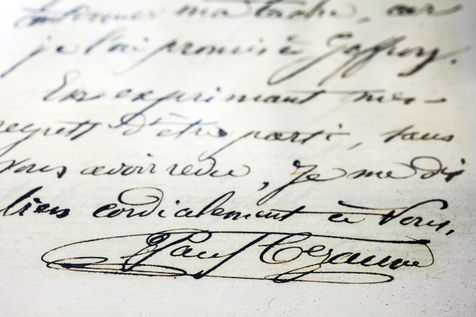 donner ma toile, car
je l'ai promise à Geffroy.
En exprimant mes
regrets d'être parti, sans
vous avoir revu, je me dis
bien cordialement à vous,
Paul Cezanne